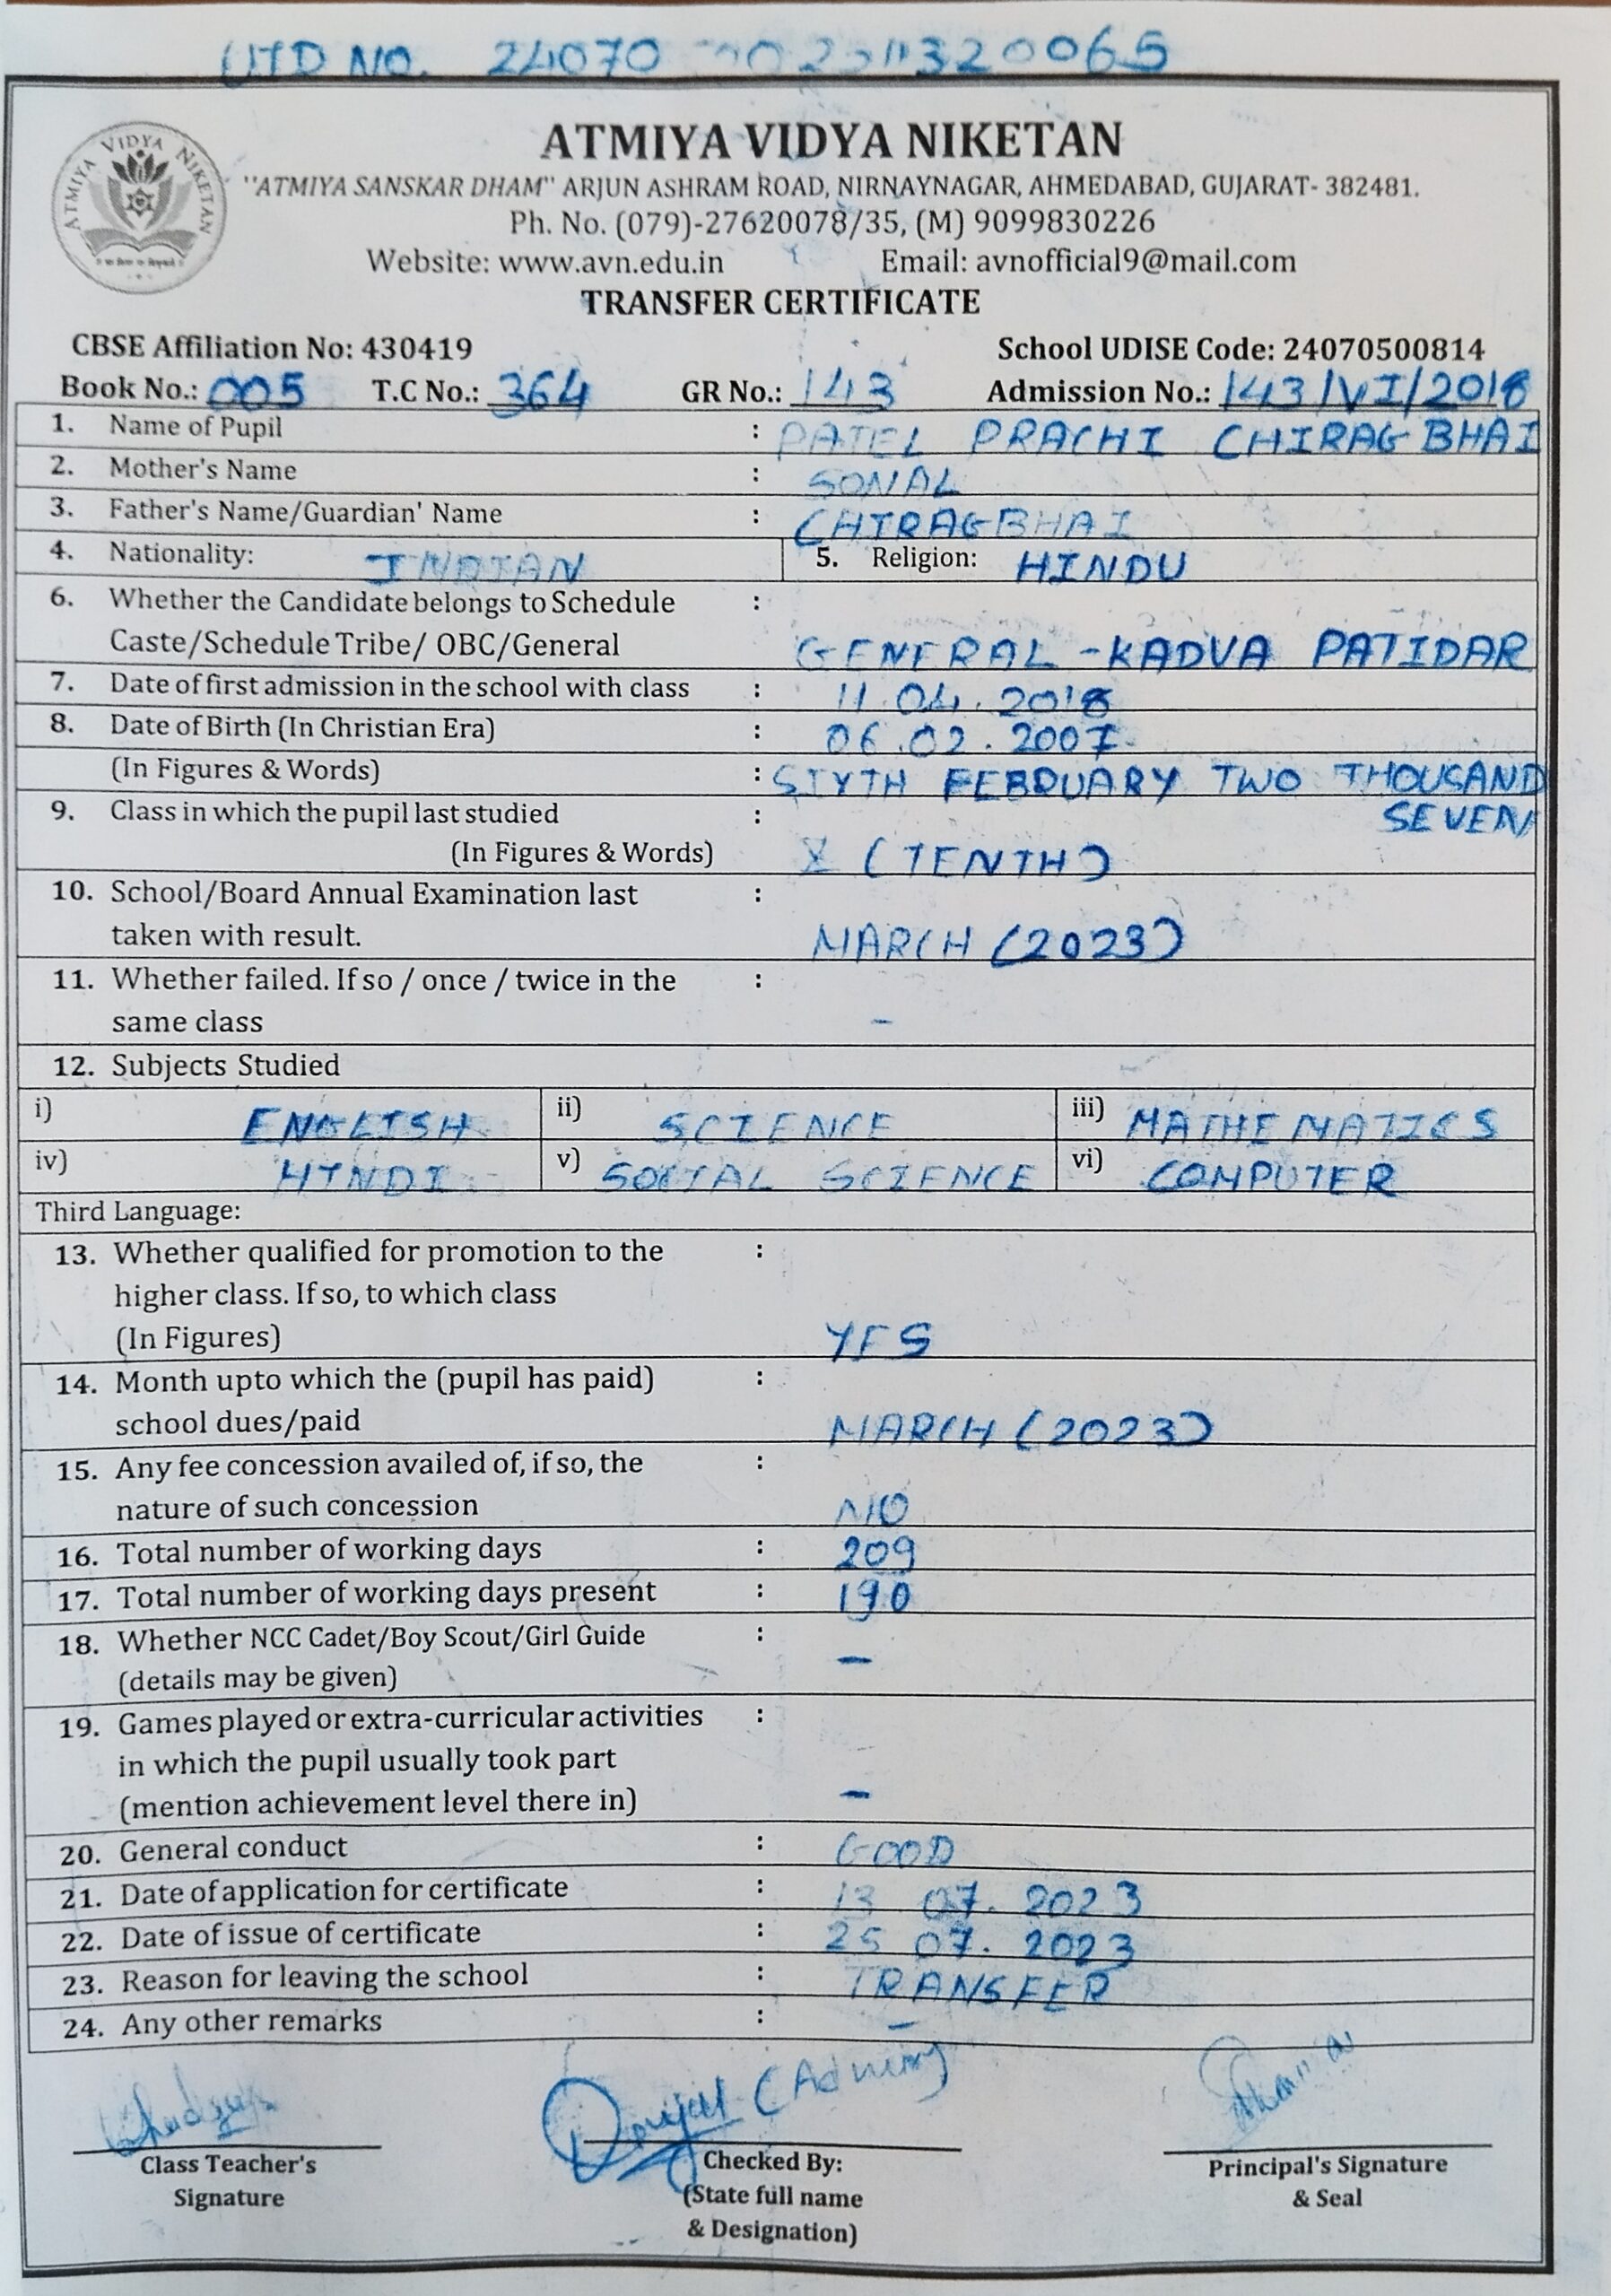 UID NO. 24070 320065
ATMIYA VIDYA NIKETAN
ATMIYA VIDYA NIKETAN
"ATMIYA SANSKAR DHAM" ARJUN ASHRAM ROAD, NIRNAYNAGAR, AHMEDABAD, GUJARAT- 382481.
Ph. No. (079)-27620078/35, (M) 9099830226
Website: www.avn.edu.in Email: avnofficial9@mail.com
TRANSFER CERTIFICATE
CBSE Affiliation No: 430419 School UDISE Code: 24070500814
Book No.: 005 T.C No.: 364 GR No.: 143 Admission No.: 143/VI/2018
1. Name of Pupil : PATEL PRACHI CHIRAGBHAI
2. Mother's Name : SONAL
3. Father's Name/Guardian' Name : CHIRAGBHAI
4. Nationality: INDIAN 5. Religion: HINDU
6. Whether the Candidate belongs to Schedule :
Caste/Schedule Tribe/ OBC/General GENERAL -KADVA PATIDAR
7. Date of first admission in the school with class : 11.04.2018
8. Date of Birth (In Christian Era) : 06.02.2007
(In Figures & Words) : SIXTH FEBRUARY TWO THOUSAND
9. Class in which the pupil last studied : SEVEN
(In Figures & Words) X (TENTH)
10. School/Board Annual Examination last :
taken with result. MARCH (2023)
11. Whether failed. If so / once / twice in the :
same class -
12. Subjects Studied
i) ENGLISH ii) SCIENCE iii) MATHEMATICS
iv) HINDI v) SOCIAL SCIENCE vi) COMPUTER
Third Language:
13. Whether qualified for promotion to the :
higher class. If so, to which class
(In Figures) YES
14. Month upto which the (pupil has paid) :
school dues/paid MARCH (2023)
15. Any fee concession availed of, if so, the :
nature of such concession NO
16. Total number of working days : 209
17. Total number of working days present : 190
18. Whether NCC Cadet/Boy Scout/Girl Guide :
(details may be given) -
19. Games played or extra-curricular activities :
in which the pupil usually took part
(mention achievement level there in) -
20. General conduct : GOOD
21. Date of application for certificate : 13 07. 2023
22. Date of issue of certificate : 25 07. 2023
23. Reason for leaving the school : TRANSFER
24. Any other remarks : -
(Admin)
Class Teacher's Checked By: Principal's Signature
Signature (State full name & Seal
& Designation)